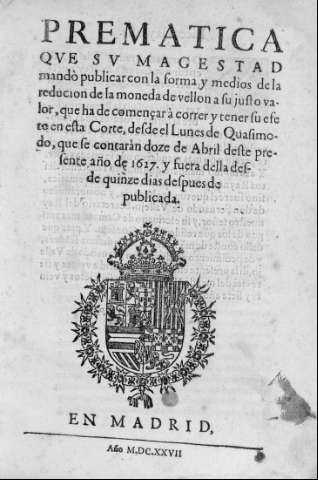 PREMATICA
QVE SV MAGESTAD
mandò publicar con la forma, y medios de la
reducion de la moneda de vellon a su justo va-
lor, que ha de començar à correr y tener su efe
to en esta Corte, desde el Lunes de Quasimo-
do, que se contaràn doze de Abril deste pre-
sente año de 1627. y fuera della des-
de quinze dias despues de
publicada.
EN MADRID,
Año M.DC.XXVII